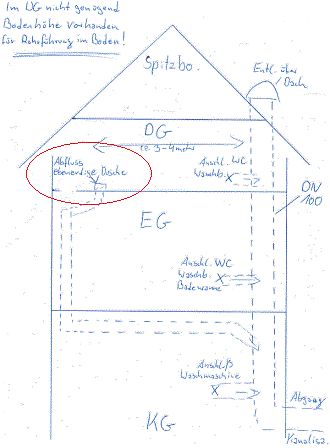 Im DG nicht genügend
Bodenhöhe vorhanden
für Rohrführung im Boden!
Spitzbo.
Entl. über
Dach
DG
ca. 3-4 meter
Abfluss
ebenerdige Dusche
Anschl. WC
Waschb.
DN
100
EG
Anschl. WC
Waschb.
Badewanne
Anschluß
Waschmaschine
KG
Abgang
Kanalisa.